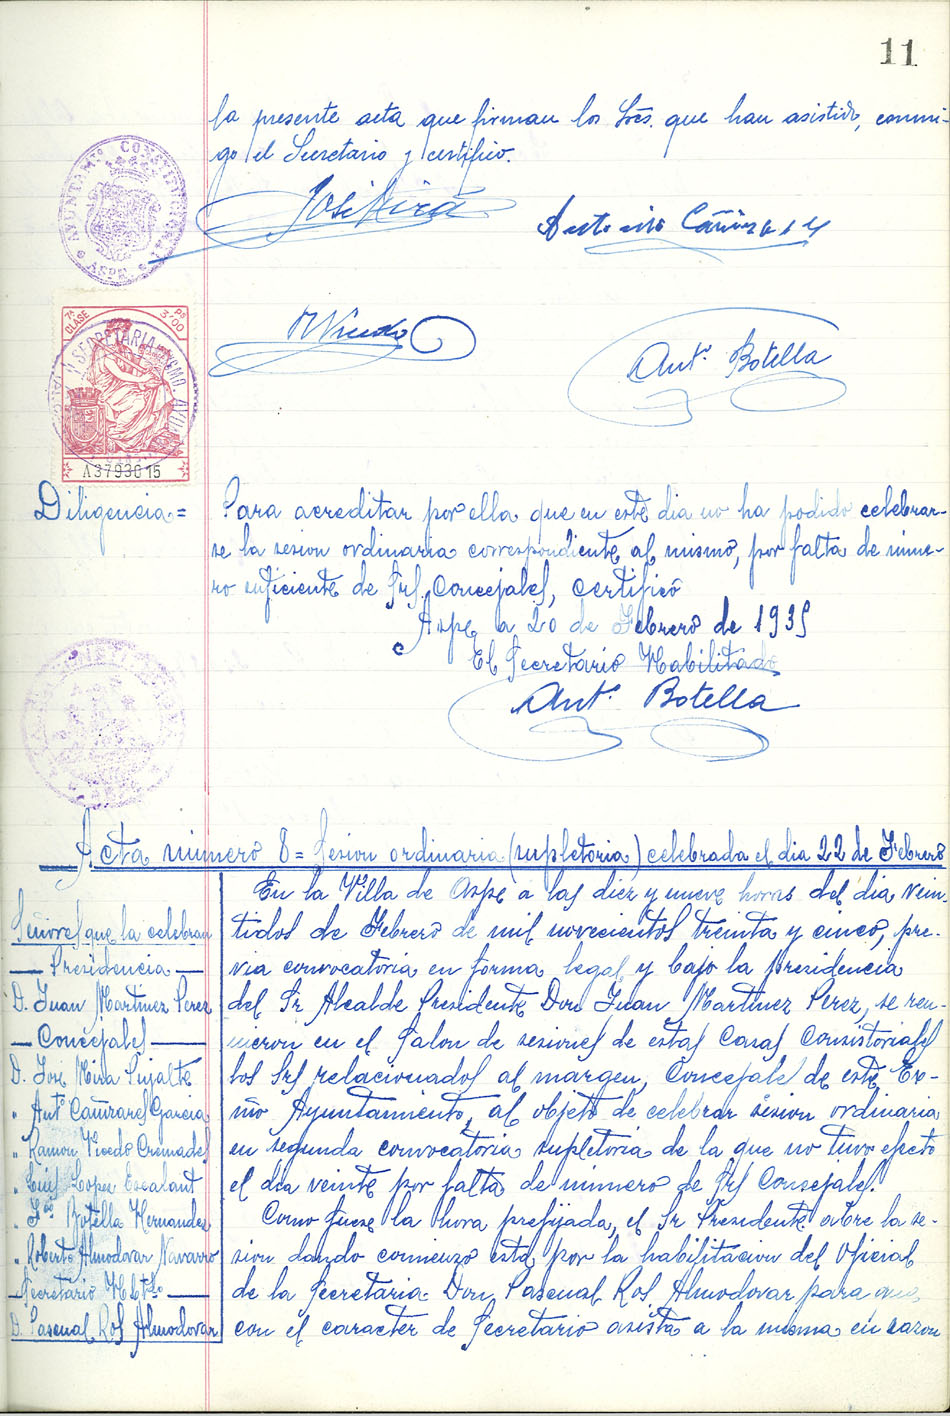 11
la presente acta que firman los Sres. que han asistido, conmi-
go el Secretario y certifico.
AYUNTAMTO. CONSTITUCIONAL
ASPE
José Mira
Antonio Cañizares
R Vicedo
Antº. Botella
7ª CLASE
3'00
SECRETARIA
A3793615
Diligencia = Para acreditar por ella que en este dia no ha podido celebrar-
se la sesion ordinaria correspondiente al mismo, por falta de nume-
ro suficiente de Srs. Concejales, certifico
Aspe a 20 de Febrero de 1935
El Secretario Habilitado
Antº. Botella
Acta número 8 = Sesion ordinaria (supletoria) celebrada el dia 22 de Febrero
Señores que la celebran
— Presidencia —
D. Juan Martinez Perez
— Concejales —
D. José Mira Pujalte
" Antº Cañizares Garcia
" Ramon Vicedo Cremades
" Luis Lopez Escalant
" Botella Hernandez
" Roberto Almodovar Navarro
Secretario Hbtdo —
D. Pascual Ros Almodovar
En la Villa de Aspe a las diez y nueve horas del dia vein-
tidos de Febrero de mil novecientos treinta y cinco, pre-
via convocatoria en forma legal y bajo la presidencia
del Sr Alcalde Presidente Don Juan Martinez Perez, se reu-
nieron en el Salon de sesiones de estas Casas Consistoriales
los Srs relacionados al margen, Concejales de este Ex-
mo Ayuntamiento, al objeto de celebrar sesion ordinaria
en segunda convocatoria supletoria de la que no tuvo efecto
el dia veinte por falta de número de Srs Concejales.
Como fuese la hora prefijada, el Sr Presidente abre la se-
sion dando comienzo esta por la habilitacion del Oficial
de la Secretaria Don Pascual Ros Almodovar para que,
con el caracter de Secretario asista a la misma en razon